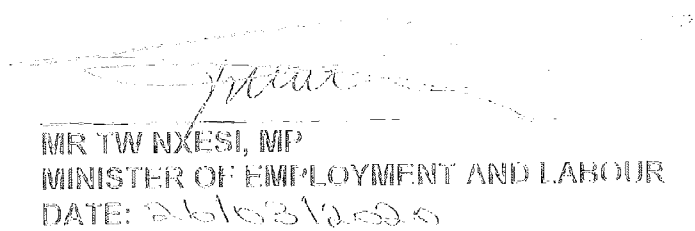 MR TW NXESI, MP
MINISTER OF EMPLOYMENT AND LABOUR
DATE: 26/03/2020